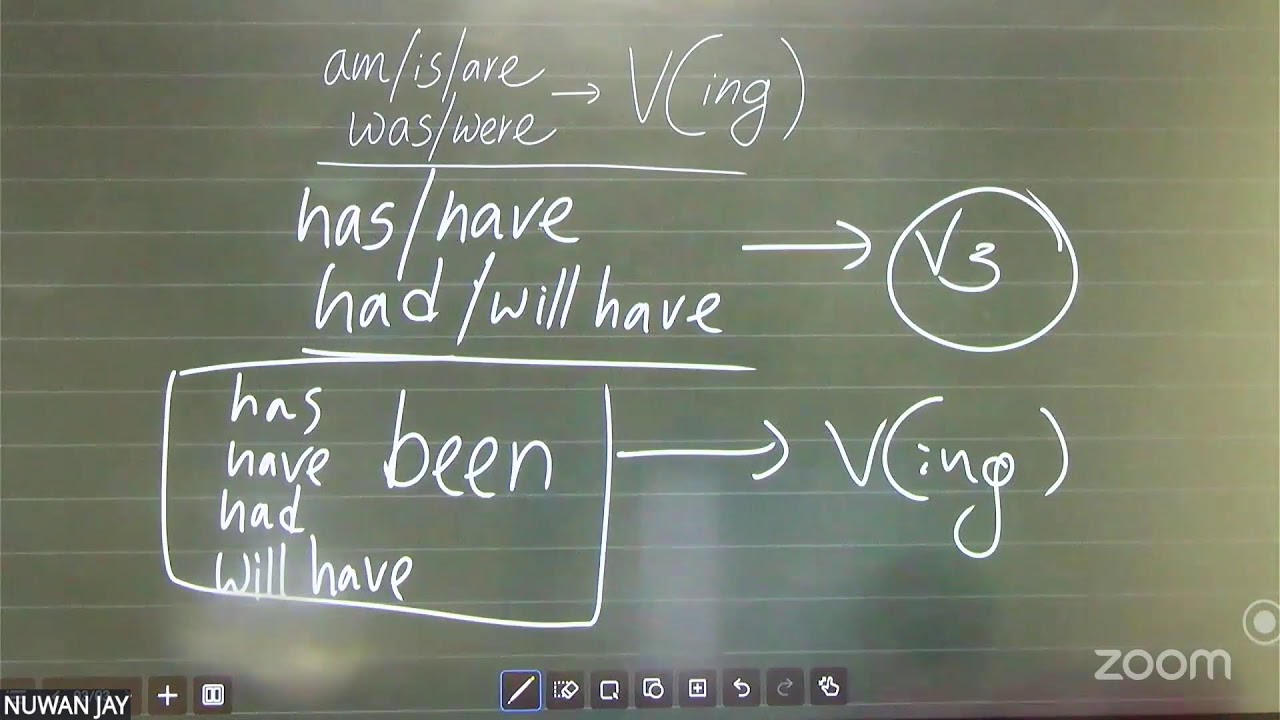 am/is/are
was/were → V(ing)
has/have
had/will have → V3
has
have been → V(ing)
had
will have
zoom
NUWAN JAY